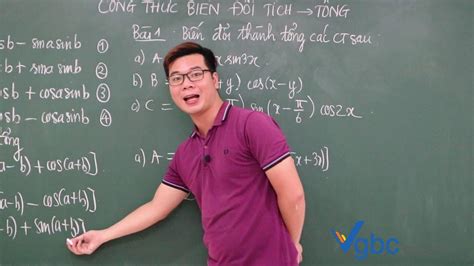 CÔNG THỨC BIẾN ĐỔI TÍCH → TỔNG
sb - sinasinb ①
sb + sinasinb ②
osb + cosasinb ③
sb - cosasinb ④
a-b) + cos(a+b)]
a-b) - cos(a+b)]
-b) + sin(a+b)]
Bài 1: Biến đổi thành tổng các CT sau:
a) A = sin3x
b) B = y) cos(x-y)
c) C = ) sin(x - π/6) cos2x
a) A = (x + 3x)]
Vgbc